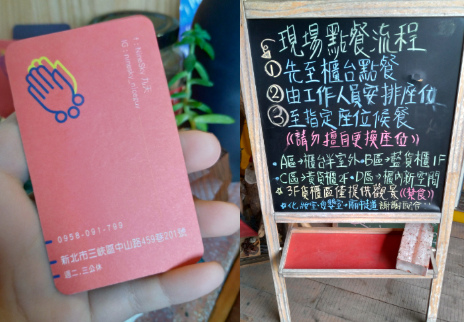 0958-091-790
新北市三峽區中山路459巷201號
週二.三公休
現場點餐流程
①先至櫃台點餐
②由工作人員安排座位
③至指定座位候餐
《請勿擅自更換座位》
•A區→櫃台半室外•B區→藍貨櫃1F
•C區→黃貨櫃
•D區→
☆3F貨櫃區僅提供觀景《禁食》
謝謝配合